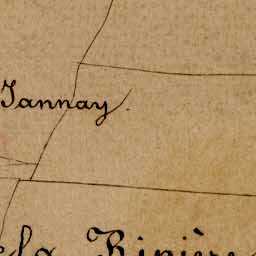 Jannay.
de la Rivière